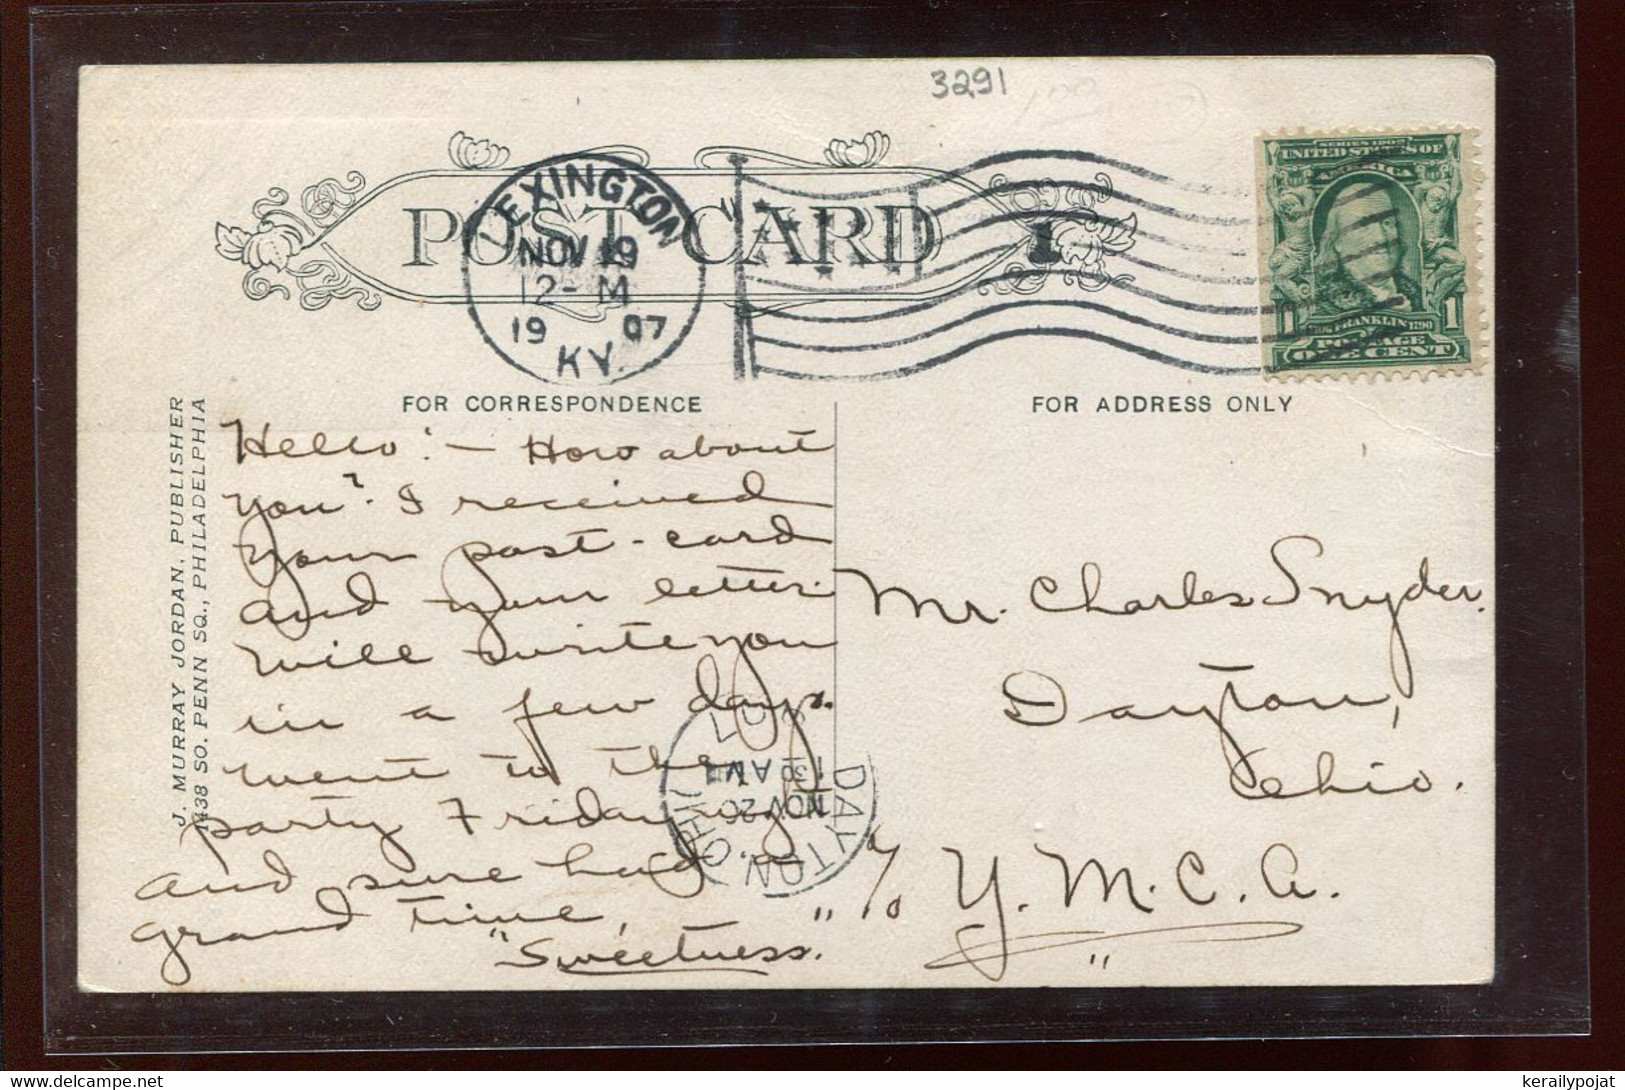 3291
POST CARD
LEXINGTON
NOV 19
12-M
19 07
KY.
1
SERIES 1902
UNITED STATES OF
AMERICA
1706 FRANKLIN 1790
1 POSTAGE 1
ONE CENT
FOR CORRESPONDENCE
FOR ADDRESS ONLY
J. MURRAY JORDAN, PUBLISHER
1438 SO. PENN SQ., PHILADELPHIA
Hello! - How about
you? I received
your post-card
and your letter.
will write you
in a few days.
went to the
party Friday night
and sure had a
grand time,
"Sweetness."
DAYTON
NOV 20
130 AM
OHIO
Mr. Charles Snyder.
Dayton,
Ohio.
c/o Y.M.C.A.
kerailypojat